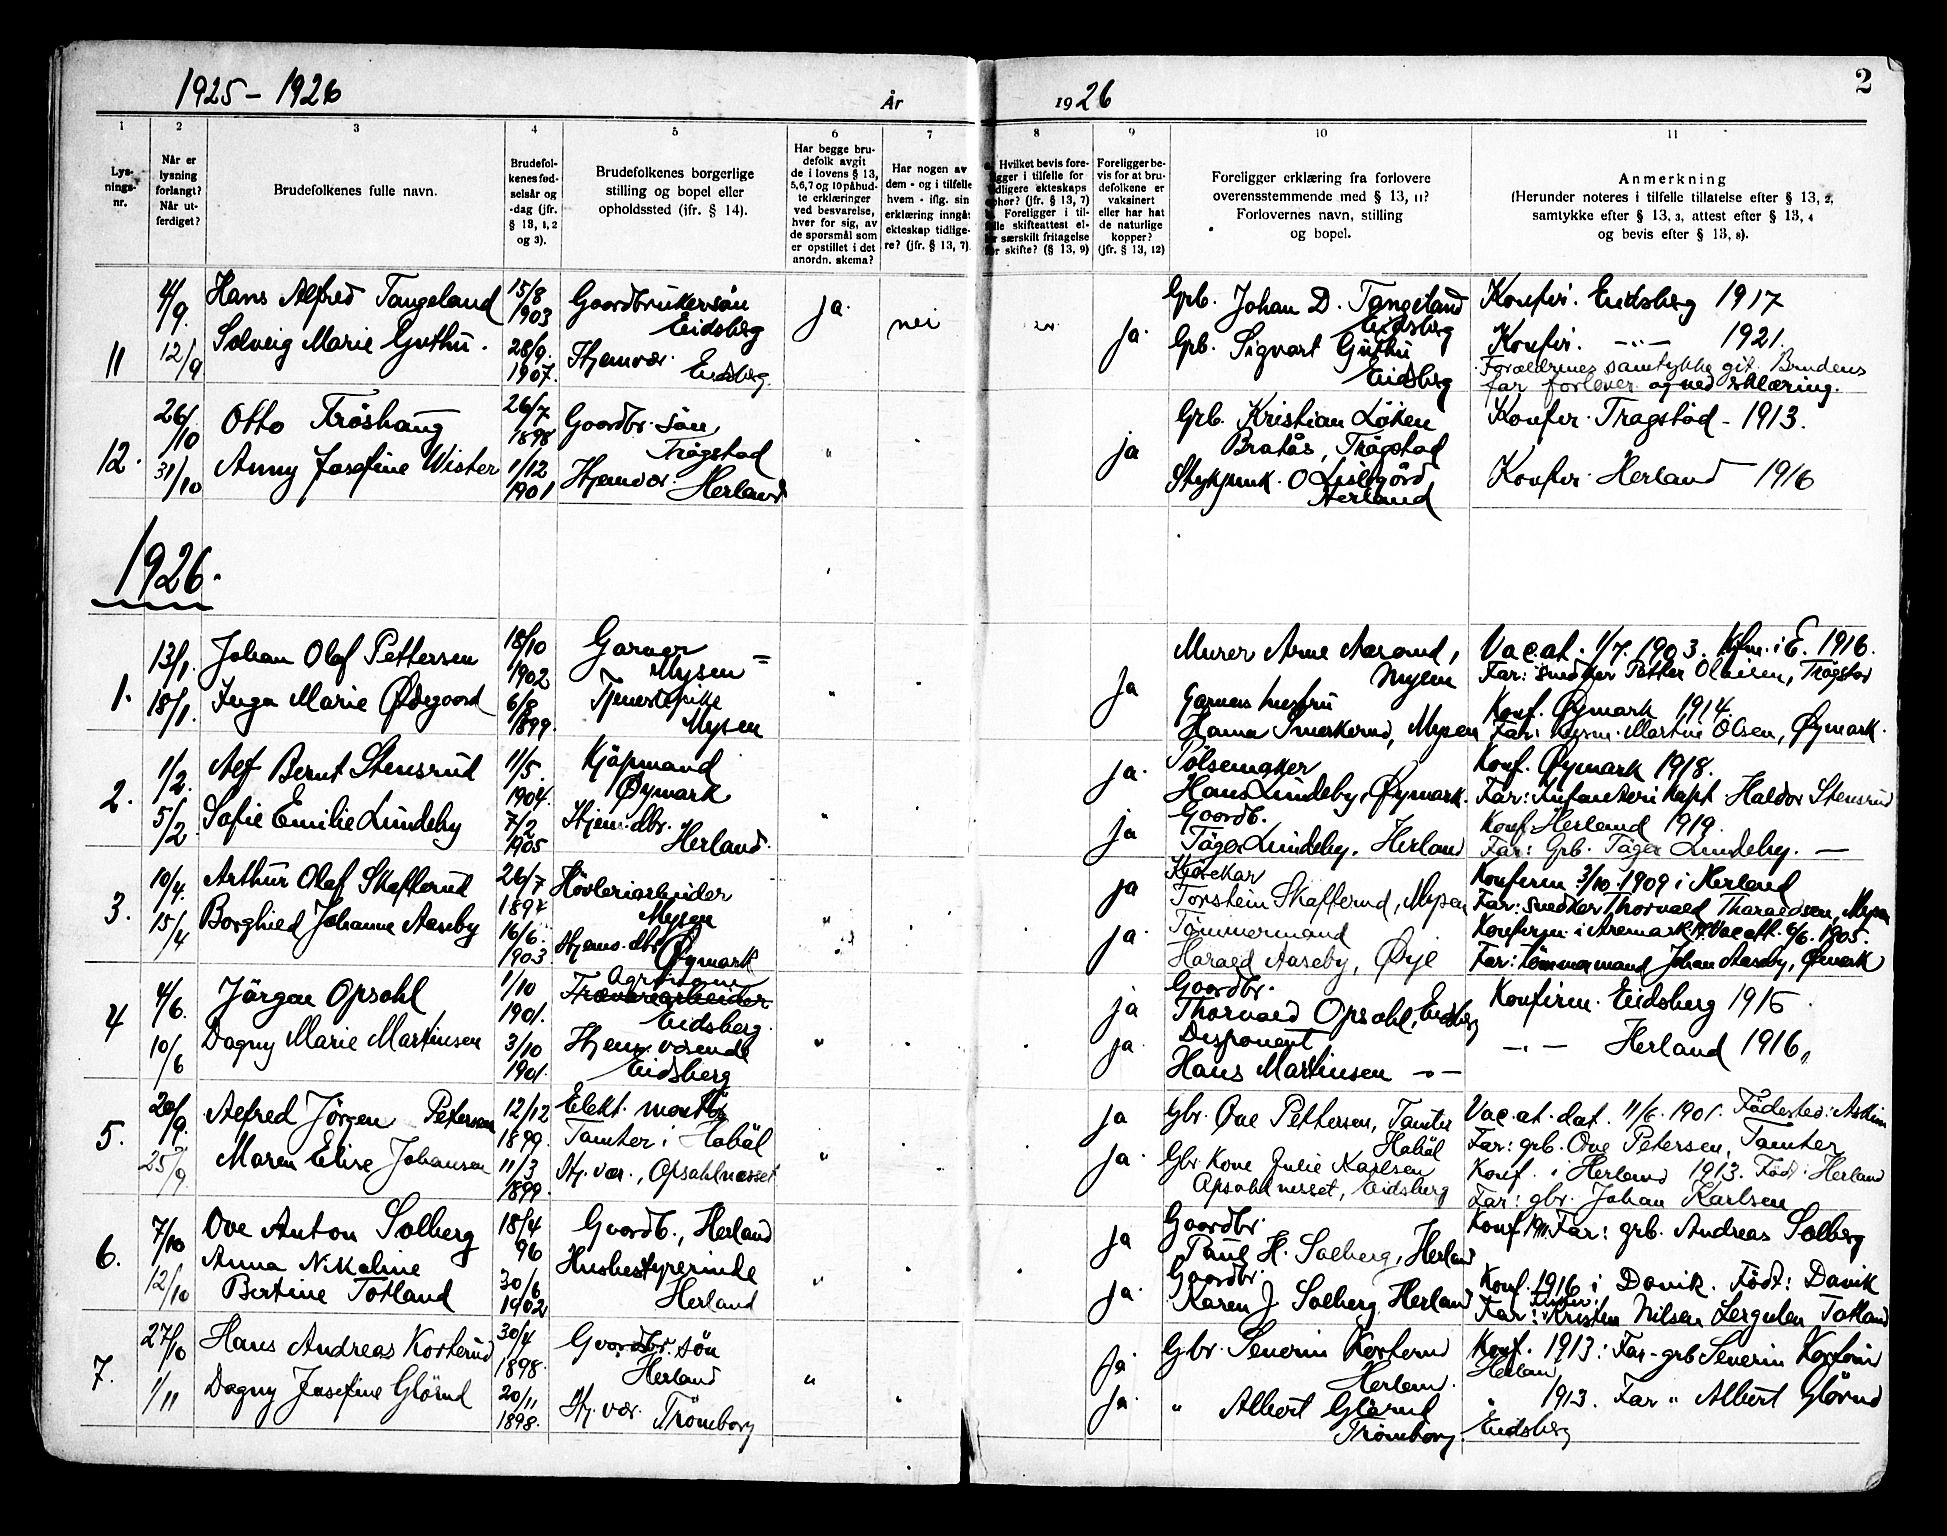 1925 – 1926
År
1926
2
1
2
3
4
5
6
7
8
9
10
11
Lys-
nings-
nr.
Når er
lysning
forlangt?
Når ut-
ferdiget?
Brudefolkenes fulle navn.
Brudefol-
kenes fød-
selsår og
-dag (jfr.
§ 13, 1, 2
og 3).
Brudefolkenes borgerlige
stilling og bopel eller
opholdssted (ifr. § 14).
Har begge bru-
defolk avgit
de i lovens § 13,
5,6,7 og 10 påbud-
te erklæringer
ved besvarelse,
hver for sig, av
de spørsmål som
er opstillet i det
anordn. skema?
Har nogen av
dem - og i tilfelle
hvem - iflg. sin
erklæring inngåt
ekteskap tidlige-
re? (jfr. § 13, 7).
Hvilket bevis fore-
ligger i tilfelle for
tidligere ekteskaps
ophør? (jfr. § 13, 7)
Foreligger i til-
felle skifteattest el-
ler særskilt fritagelse
for skifte? (§ 13, 9)
Foreligger be-
vis for at bru-
defolkene er
vaksinert
eller har hat
de naturlige
kopper?
(jfr. § 13, 12)
Foreligger erklæring fra forlovere
overensstemmende med § 13, 11?
Forlovernes navn, stilling
og bopel.
Anmerkning
(Herunder noteres i tilfelle tillatelse efter § 13, 2,
samtykke efter § 13, 3, attest efter § 13, 4
og bevis efter § 13, 8).
11
4/9
12/9
Hans Alfred Tangeland
Solveig Marie Guthu.
15/8
1903
28/9.
1907.
Gaardbrukersøn
Eidsberg
Hjemvær.
Eidsberg.
ja.
nei
ja.
Grb. Johan D. Tangeland
Eidsberg
Grb. Sigvart Guthu
Eidsberg
Konfir. Eidsberg 1917
Konfir. –"– 1921.
Forældrenes samtykke git. Brudens
far forlover og ved erklæring.
12.
26/10
31/10
Otto Frøshaug
Anny Josefine Wister
26/7
1898
1/12
1901
Gaardbr. søn
Trøgstad
Hjemvær.
Herland
"
ja
Grb. Kristian Løken
Bratås, Trøgstad
O Lislegård
Herland
Konfir. Trøgstad – 1913.
Konfir. Herland – 1916
1926.
1.
13/1.
18/1.
Johan Olaf Pettersen
Inga Marie Ødegaard
18/10
1902
6/8
1899.
Garver
Mysen
Tjenestepike
Mysen
"
ja
Murer Arne Aasand,
Mysen
Garvers hustru
Hanna Smerkerud, Mysen
Vac.at. 1/7. 1903. Kfm. i E. 1916.
Far: Snedker Petter Olaisen, Trøgstad
Konf. Øymark 1914.
Far: Martin Olsen, Øymark.
2.
1/2.
5/2
Alf Bernt Stensrud
Sofie Emilie Lundeby
11/5.
1904.
7/2
1905
Kjøpmand
Øymark
Hjem. dbr.
Herland.
"
ja.
ja
Pølsemaker
Hans Lundeby, Øymark.
Gaardb.
Tøger Lundeby. Herland
Konf. Øymark 1918.
Far: Infanteri Kapt. Haldor Stensrud
Konf. Herland 1919.
Far: Grb. Tøger Lundeby. –
3.
10/4.
15/4
Arthur Olaf Skofterud
Borghild Johanne Aaseby
26/7
1897
16/6.
1903
Høvleriarbeider
Mysen
Hjems. dbr.
Øymark
"
ja
ja.
Torstein Skofterud, Mysen
Tømmermand
Harald Aaseby, Ørje
Konfirm. 3/10. 1909 i Herland
Far: Snedker Thorvald Tharaldsen, Mysen
Konfirm. i Aremark. Vac att. 9/6. 1905.
Far: Tømmermand Johan Aaseby, Øymark
4
4/6.
10/6
Jørgen Opsahl
Dagny Marie Martinsen
1/10
1901.
3/10
1901.
Agronom
Trævarearbeider
Eidsberg.
Hjemværende
Eidsberg
"
ja
ja.
Gaardbr.
Thorvald Opsahl, Eidsberg
Disponent
Hans Martinsen –"–
Konfirm. Eidsberg 1915
–"– Herland 1916.
5.
20/9.
25/9
Alfred Jørgen Petersen
Maren Elise Johansen
12/12
1899.
11/3
1899.
Elekt. montør
Tamter i Hobøl
Hj. vær., Opsahlnesset
"
ja
ja.
Gbr. Ove Pettersen, Tamter
Hobøl
Gbr. Kone Julie Karlsen
Opsahlnesset, Eidsberg
Vac. at. dat. 11/6. 1901. Fødested: Askim
Far: grb. Ove Petersen, Tamter
Konf. i Herland 1913. Født i Herland
Far: gbr. Johan Karlsen
6.
7/10
12/10
Ove Anton Solberg
Anna Nikoline
Bertine Totland
18/4
96
30/6
1902
Gaardb., Herland
Husbestyrerinde
Herland
"
ja
ja.
Gaardbr.
Paul H. Solberg, Herland
Gaardbr.
Karen J. Solberg. Herland
Konf. 1911. Far: grb. Andreas Solberg
Konf. 1916 i Davik. Født: Davik
Far: Kristen Nilsen Totland
7.
27/10
1/11
Hans Andreas Korterud
Dagny Josefine Glørud
30/4
1898.
20/11
1898.
Gaardbr. søn
Herland
Hj. vær.
Trømborg
"
ja.
ja.
Gbr. Severin Korterud
Herland.
" Albert Glørud
Trømborg.
Konf. 1913: Far – grb Severin Korterud
Herland
" 1913. Far " Albert Glørud
Eidsberg